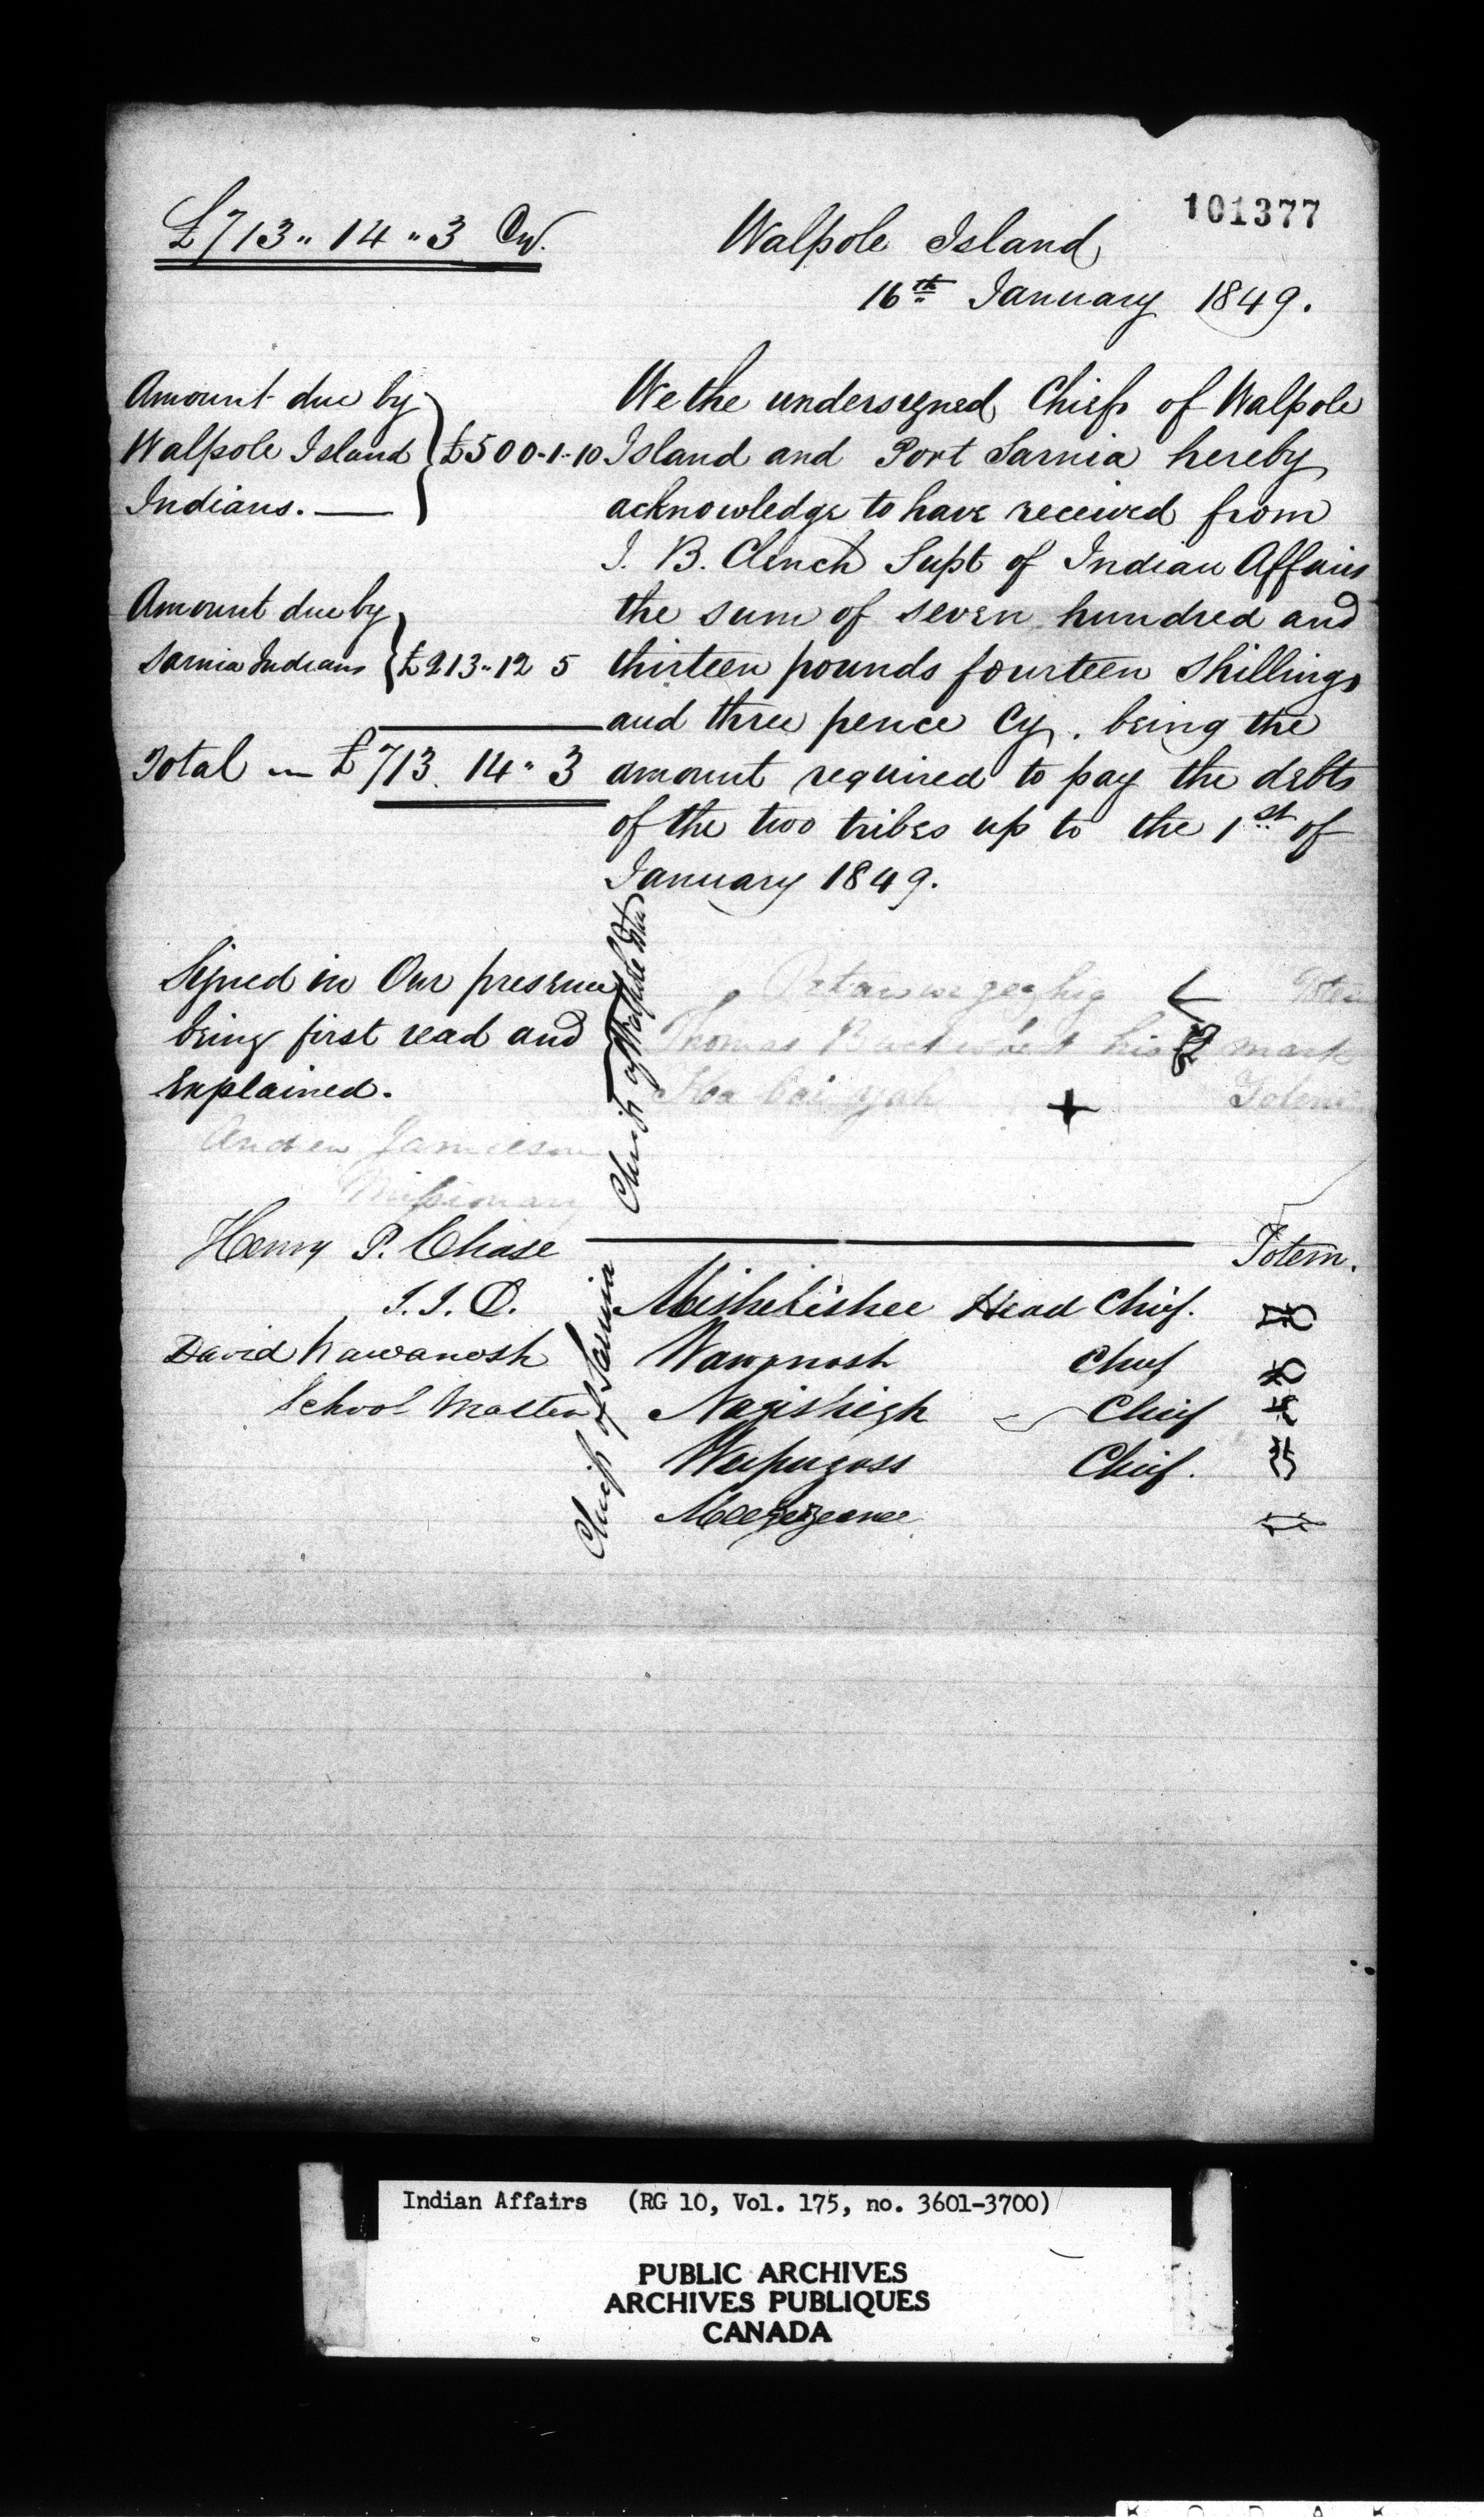 101377
£713 " 14 " 3 Cy.
Walpole Island
16th January 1849.
Amount due by
Walpole Island } £500-1-10
Indians. —
Amount due by
Sarnia Indians } £213 " 12 5
Total — £713 14 " 3
We the undersigned Chiefs of Walpole
Island and Port Sarnia hereby
acknowledge to have received from
J. B. Clench Supt of Indian Affairs
the sum of seven hundred and
thirteen pounds fourteen shillings
and three pence Cy. being the
amount required to pay the debts
of the two tribes up to the 1st of
January 1849.
Signed in Our presence
being first read and
explained.
Andrew Jamieson
Missionary
Henry P. Chase
I. I. D.
David Wawanosh
School Master
Chiefs of Walpole Isld
Totem
Thomas his mark
+ Totem
Totem.
Chiefs of Sarnia
Mishebishee Head Chief.
Wawanosh Chief
Nagishigh Chief
Wapugass Chief.
Indian Affairs (RG 10, Vol. 175, no. 3601-3700)
PUBLIC ARCHIVES
ARCHIVES PUBLIQUES
CANADA